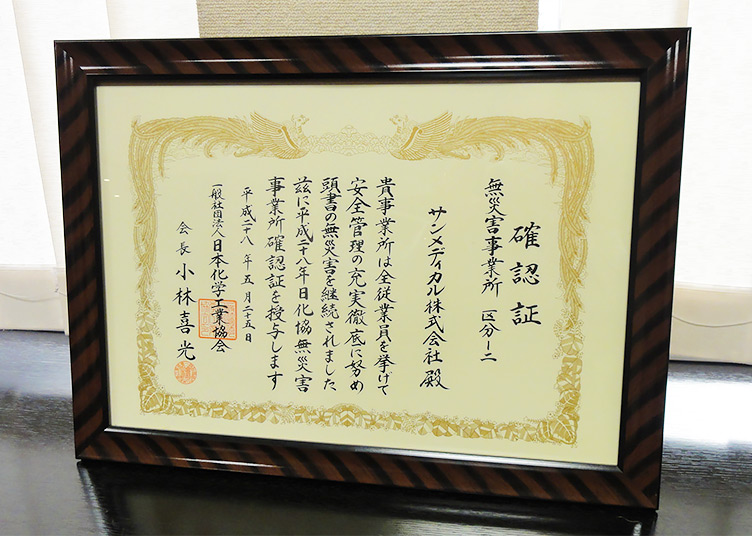 確認証
無災害事業所 区分ー二
サンメディカル株式会社 殿
貴事業所は全従業員を挙げて
安全管理の充実徹底に努め
頭書の無災害を継続されました
茲に平成二十八年日化協無災害
事業所確認証を授与します
平成二十八年五月二十五日
一般社団法人日本化学工業協会
会長 小林喜光